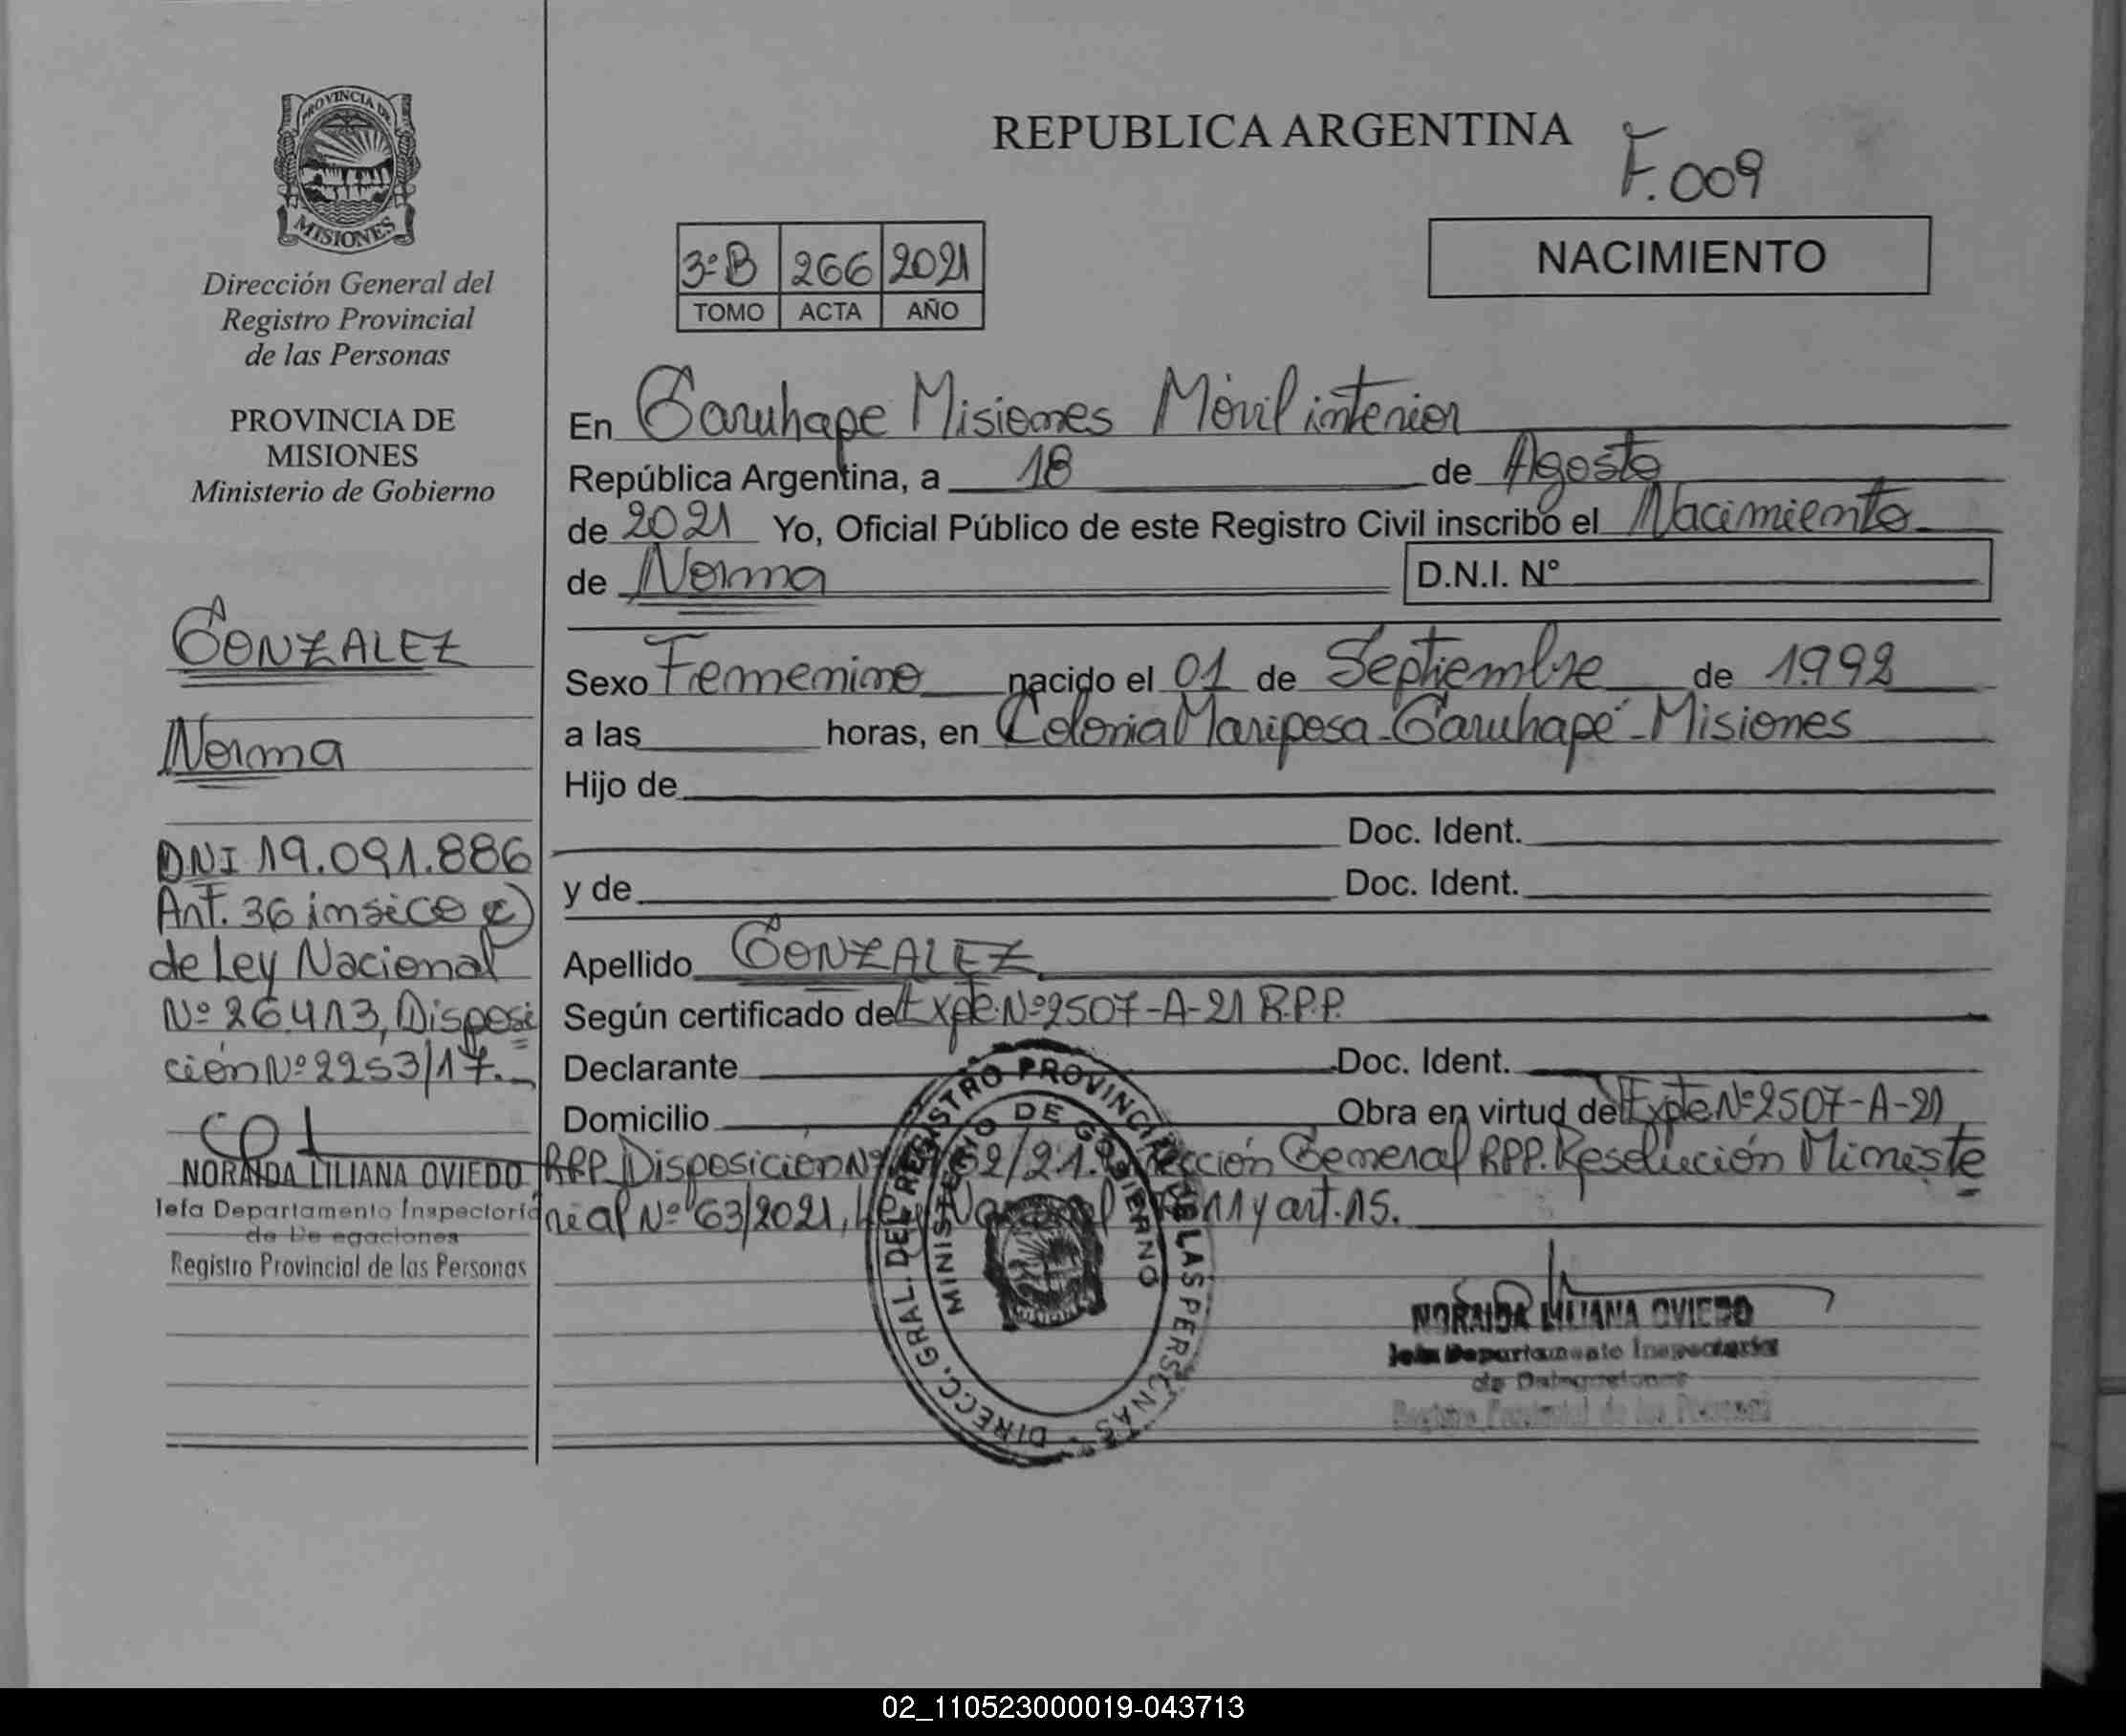 PROVINCIA DE
MISIONES
Dirección General del
Registro Provincial
de las Personas
PROVINCIA DE
MISIONES
Ministerio de Gobierno
GONZALEZ
Norma
DNI 19.091.886
Art. 36 insico c)
de Ley Nacional
Nº 26413, Disposi
ción Nº 2253/17.
NORAIDA LILIANA OVIEDO
Jefa Departamento Inspectoría
de Delegaciones
Registro Provincial de las Personas
REPUBLICA ARGENTINA
F.009
3º B 266 2021
TOMO ACTA AÑO
NACIMIENTO
En Garuhape Misiones Móvil interior
República Argentina, a 18 de Agosto
de 2021 Yo, Oficial Público de este Registro Civil inscribo el Nacimiento
de Norma D.N.I. Nº
Sexo Femenino nacido el 01 de Septiembre de 1.992
a las horas, en Colonia Mariposa - Garuhapé - Misiones
Hijo de
Doc. Ident.
y de Doc. Ident.
Apellido GONZALEZ
Según certificado de Expte. Nº 2507-A-21 R.P.P.
Declarante Doc. Ident.
Domicilio Obra en virtud de Expte Nº 2507-A-21
RPP. Disposición Nº /21. Dirección General RPP. Resolución Ministe
rial Nº 63/2021, Ley y art. 15.
DIRECC. GRAL. DEL REGISTRO PROVINCIAL DE LAS PERSONAS
MINISTERIO DE GOBIERNO
NORAIDA LILIANA OVIEDO
Jefa Departamento Inspectoría
de Delegaciones
Registro Provincial de las Personas
02_110523000019-043713